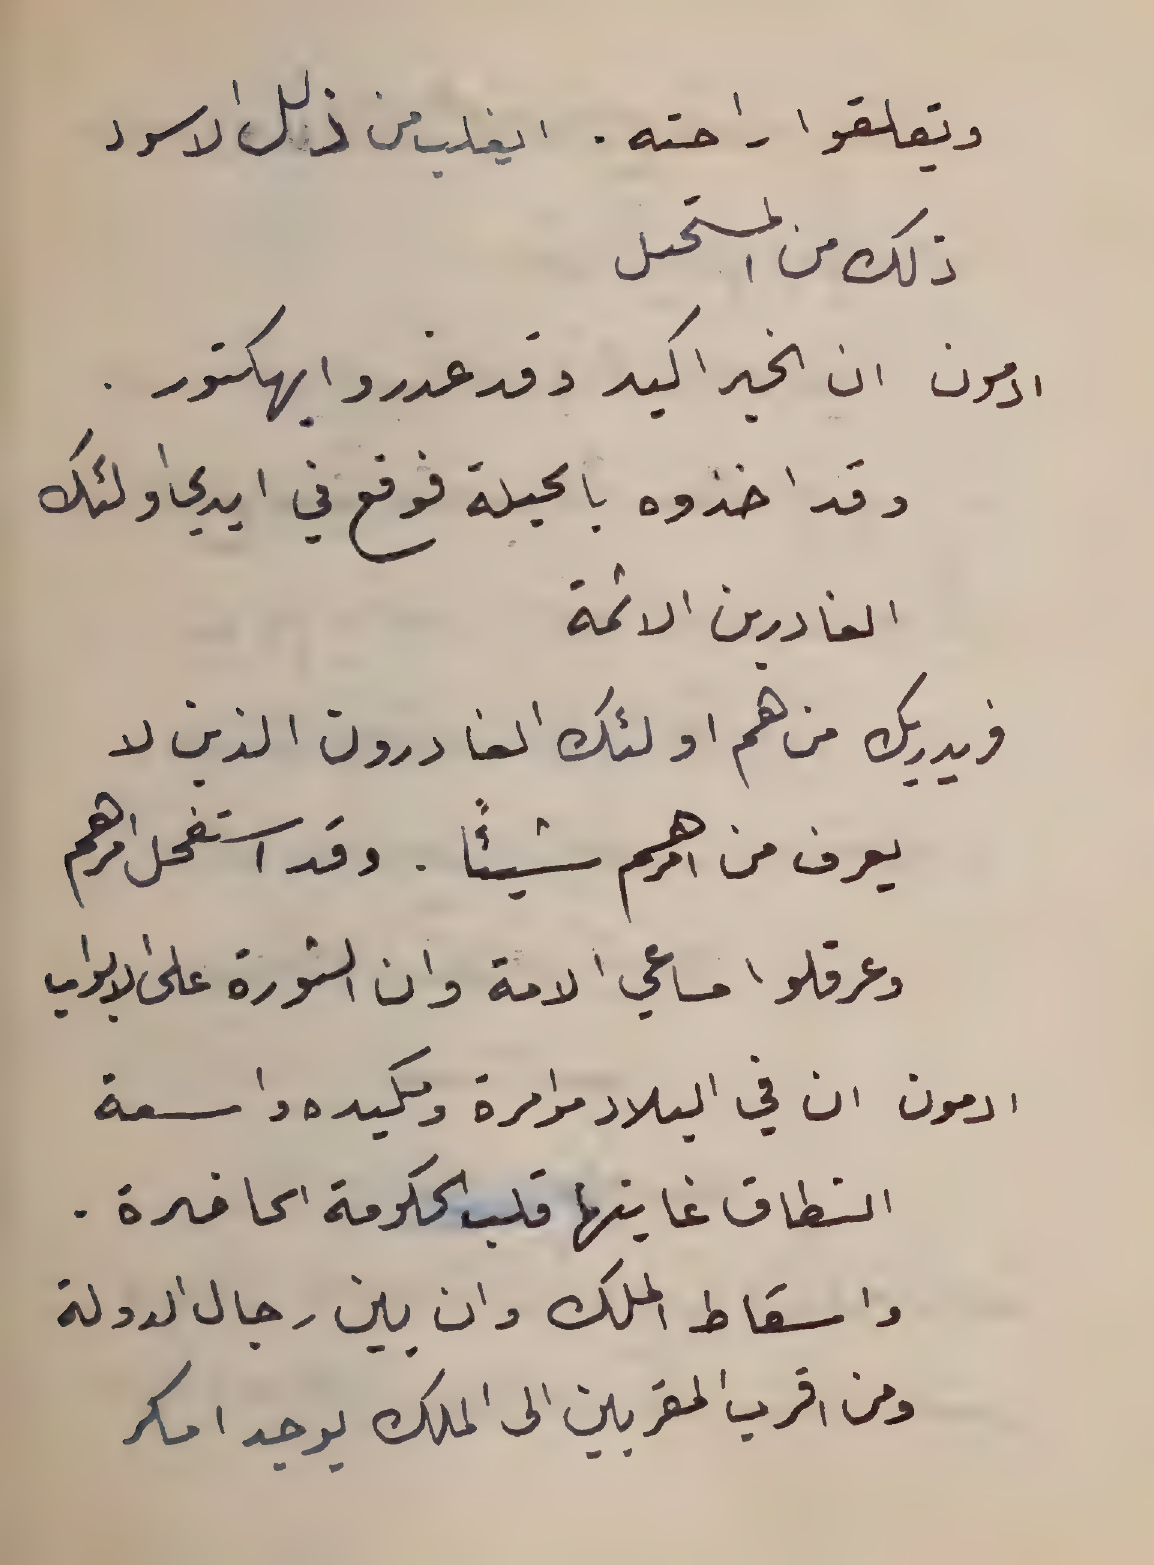 ويقلقوا راحته . ايغلب من ذلك الاسود
ذلك من المستحيل
ادمون ان الخبر اكيد وقد غدروا بهكتور .
وقد اخذوه بالحيلة فوقع في ايدي اولئك
الغادرين الاثمة
فريدريك من هم اولئك الغادرون الذين لا
يعرف من امرهم شيئاً . وقد استفحل امرهم
وعرقلوا مساعي الامة وان الثورة على الابواب
ادمون ان في البلاد مؤامرة ومكيده واسعة
النطاق غايتها قلب الحكومة الحاضرة .
واسقاط الملك وان بين رجال الدولة
ومن اقرب المقربين الى الملك يوجد امكر